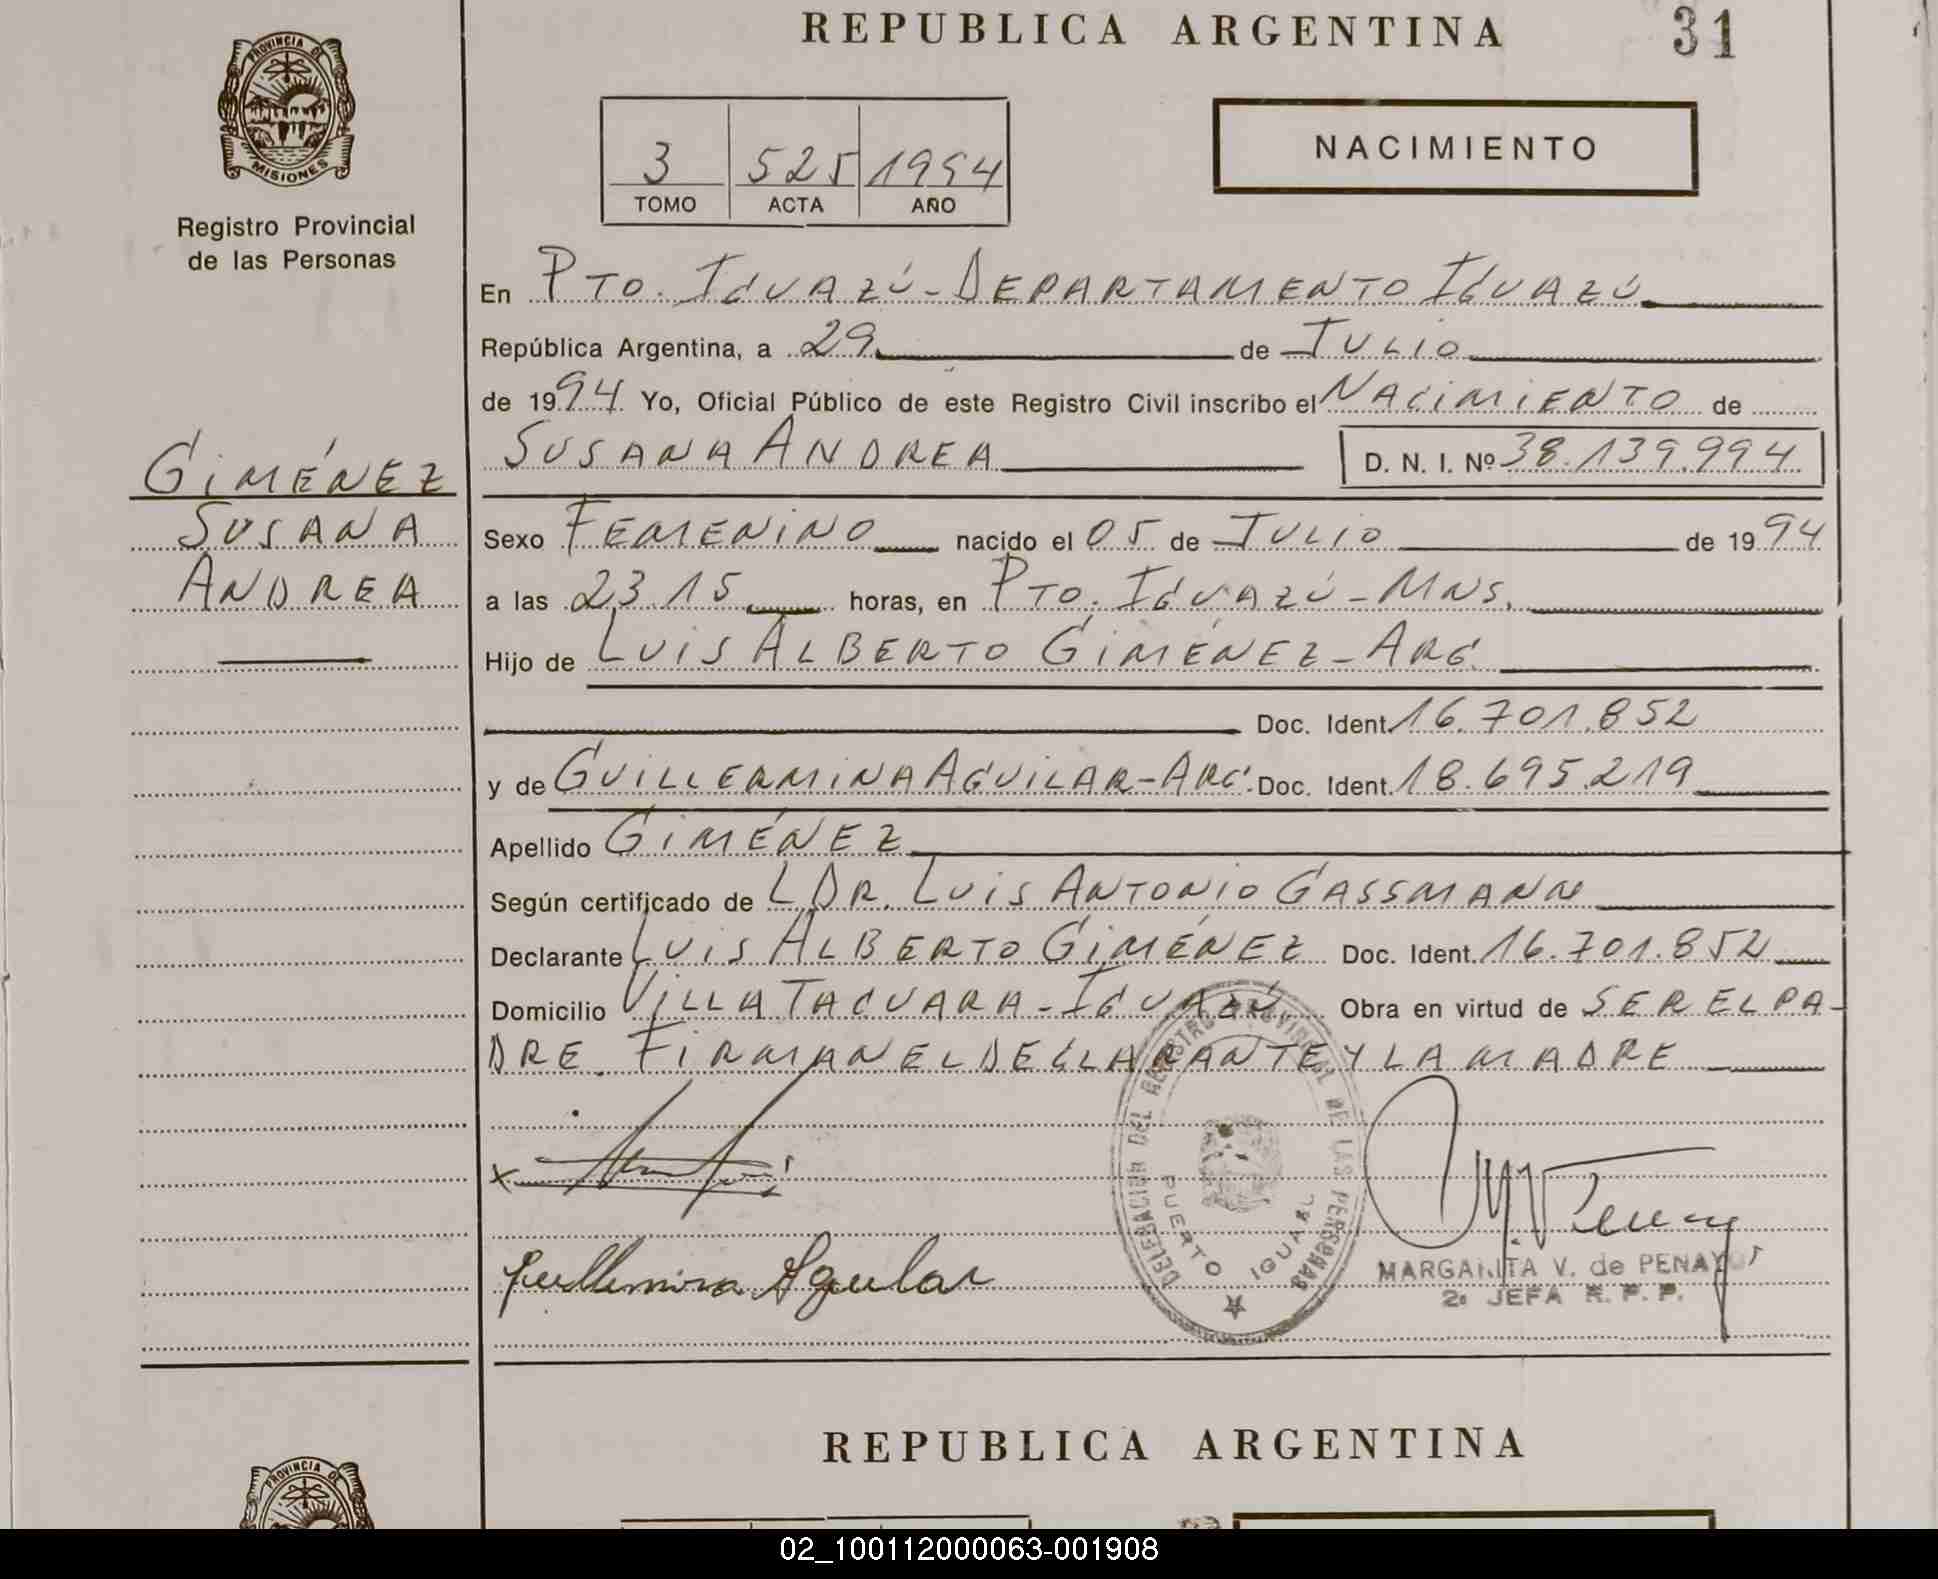 REPUBLICA ARGENTINA 31
PROVINCIA DE
MISIONES
Registro Provincial
de las Personas
3 525 1994
TOMO ACTA AÑO
NACIMIENTO
En PTO. IGUAZÚ - DEPARTAMENTO IGUAZÚ
República Argentina, a 29 de JULIO
de 1994 Yo, Oficial Público de este Registro Civil inscribo el NACIMIENTO de
SUSANA ANDREA D. N. I. Nº 38.139.994
GIMÉNEZ
SUSANA
ANDREA
Sexo FEMENINO nacido el 05 de JULIO de 1994
a las 23.15 horas, en PTO. IGUAZÚ - MNS.
Hijo de LUIS ALBERTO GIMÉNEZ - ARG.
Doc. Ident. 16.701.852
y de GUILLERMINA AGUILAR - ARG. Doc. Ident. 18.695.219
Apellido GIMÉNEZ
Según certificado de L DR. LUIS ANTONIO GASSMANN
Declarante LUIS ALBERTO GIMÉNEZ Doc. Ident. 16.701.852
Domicilio VILLA TACUARA - IGUAZÚ Obra en virtud de SER EL PA-
DRE. FIRMAN EL DECLARANTE Y LA MADRE
DELEGACION DEL REGISTRO PROVINCIAL DE LAS PERSONAS
PUERTO IGUAZU
x
Guillermina Aguilar
MARGARITA V. de PENAYO
2º JEFA R. P. P.
REPUBLICA ARGENTINA
PROVINCIA DE
02_100112000063-001908